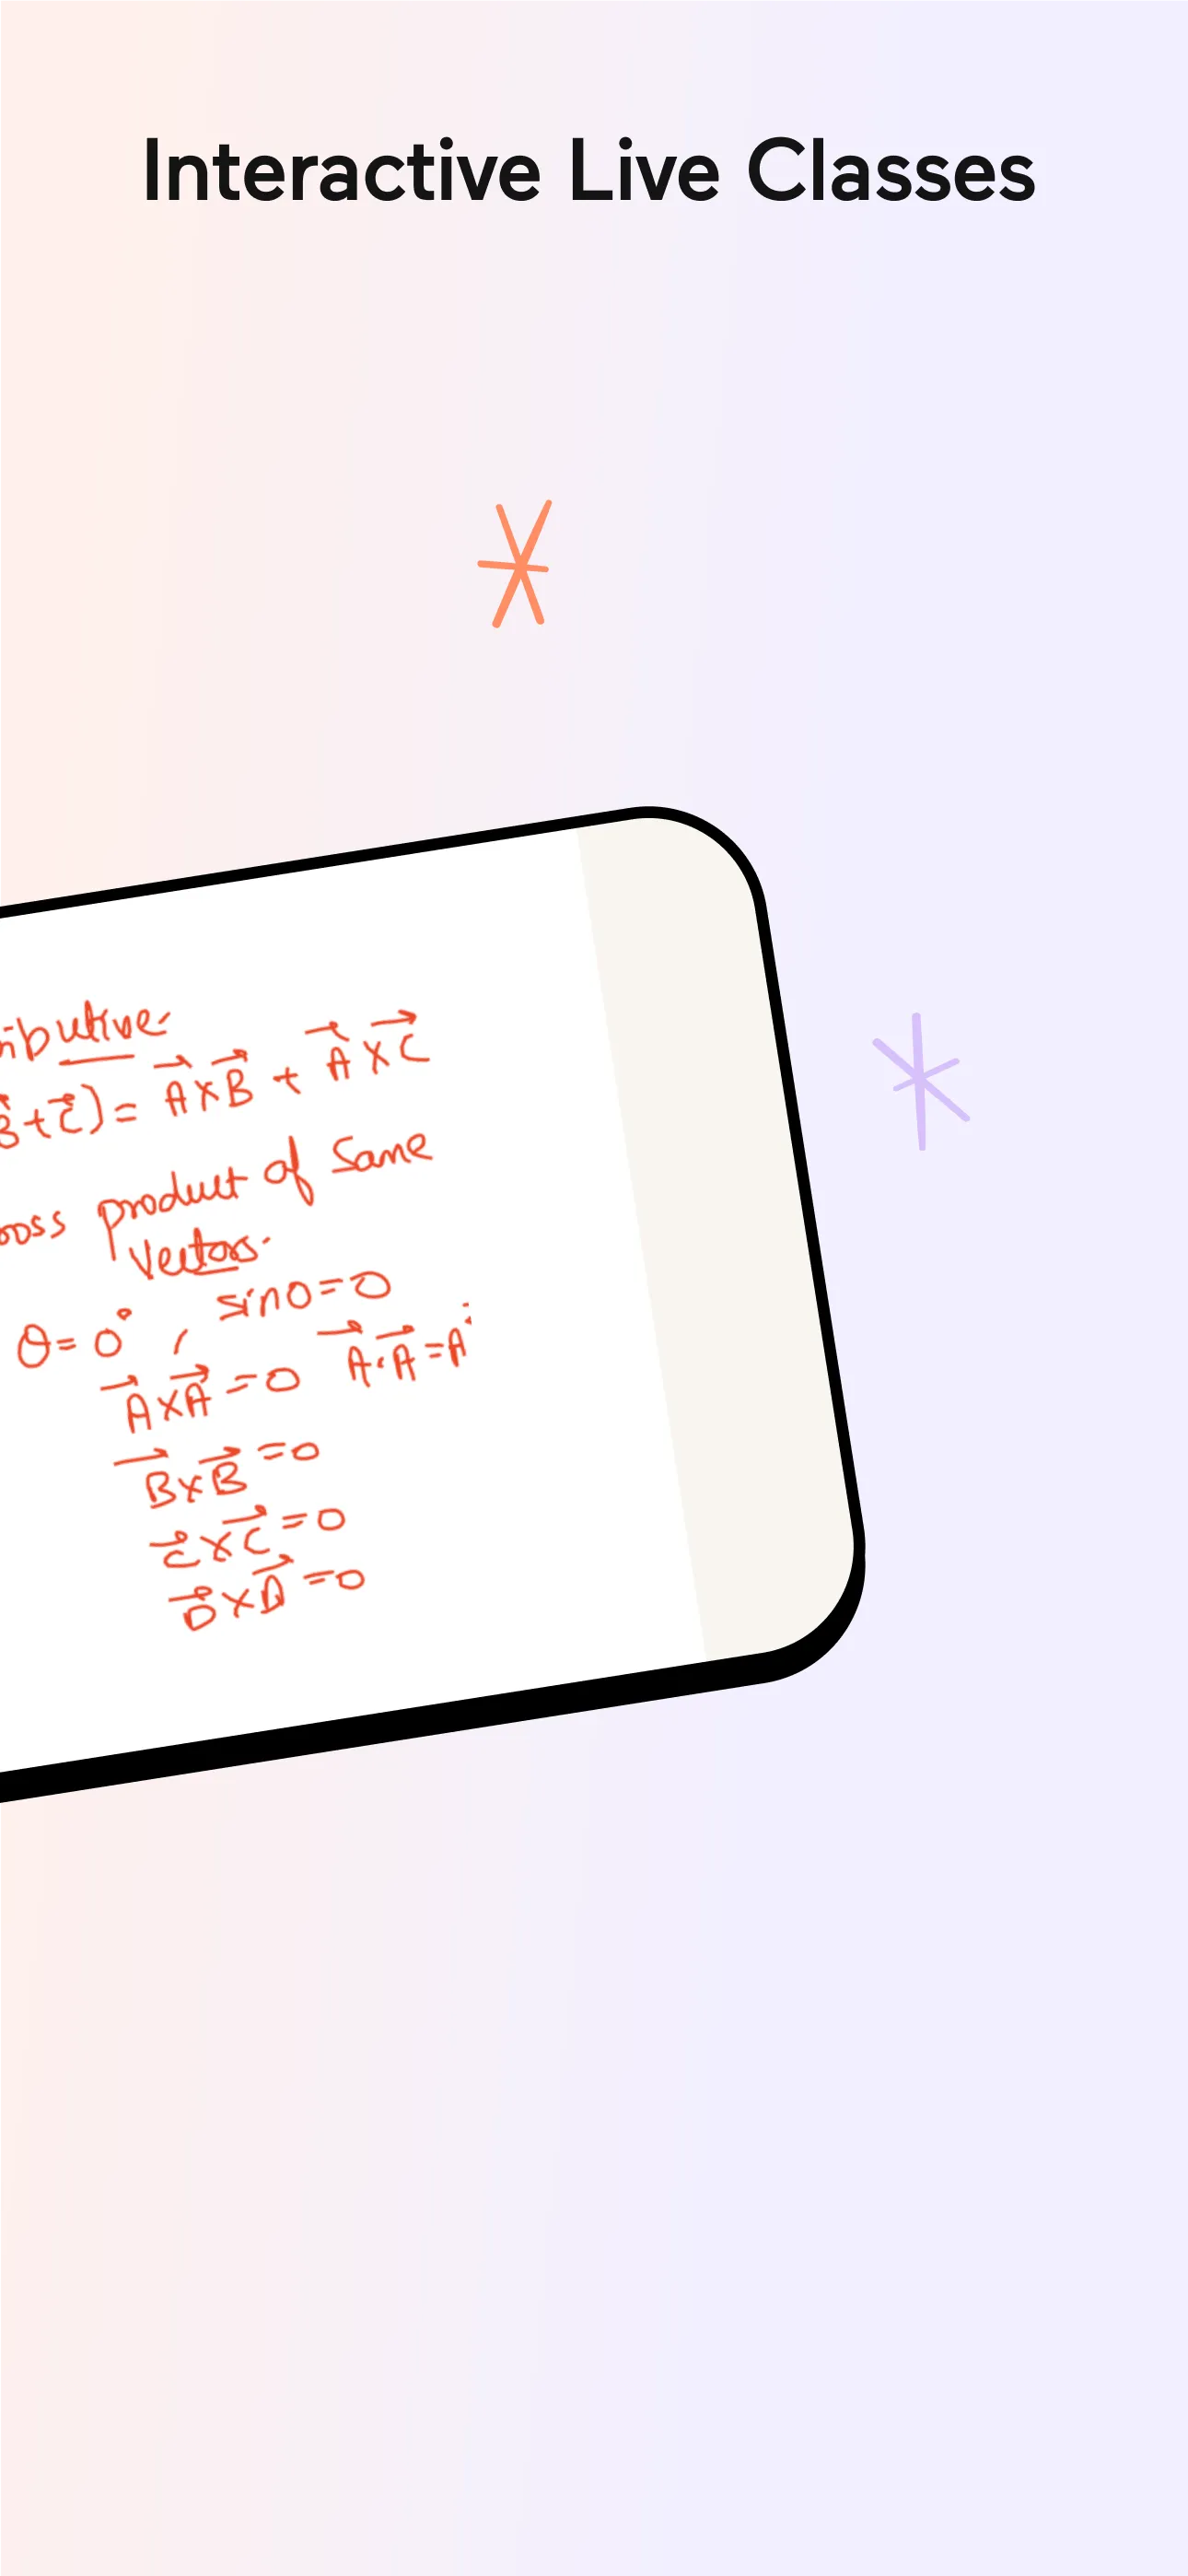 Interactive Live Classes
ributive
B⃗+C⃗)= A⃗×B⃗ + A⃗×C⃗
ross product of Same
Vectors.
θ=0°, sin0=0
A⃗×A⃗=0 A⃗·A⃗=A
B⃗×B⃗=0
C⃗×C⃗=0
D⃗×D⃗=0